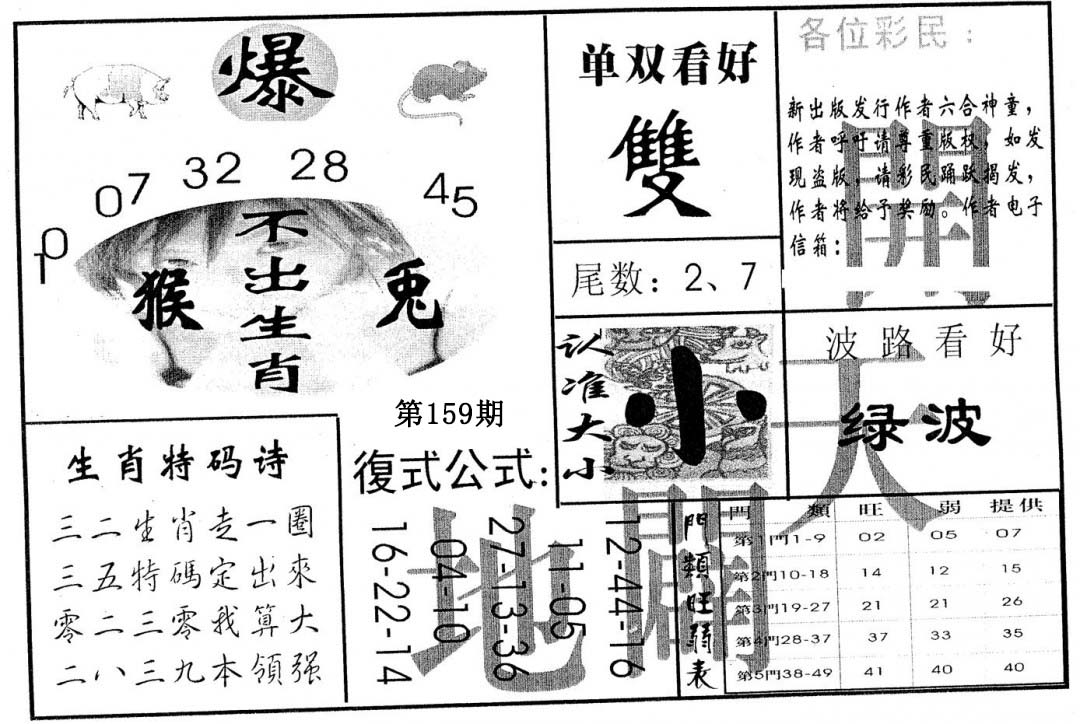 爆
10 07 32 28 45
猴 不出生肖 兔
第159期
生肖特码诗
三二生肖走一圈
三五特碼定出來
零二三零我算大
二八三九本領强
復式公式:
16-22-14
04-10
27-13-36
11-05
12-44-16
单双看好
雙
尾数：2、7
认准大小
小
各位彩民：
新出版发行作者六合神童，
作者呼吁请尊重版权，如发
现盗版，请彩民踊跃揭发，
作者将给予奖励。作者电子
信箱：
波路看好
绿波
開天
地闢
門類旺弱表
門類 旺 弱 提供
第1門1-9 02 05 07
第2門10-18 14 12 15
第3門19-27 21 21 26
第4門28-37 37 33 35
第5門38-49 41 40 40